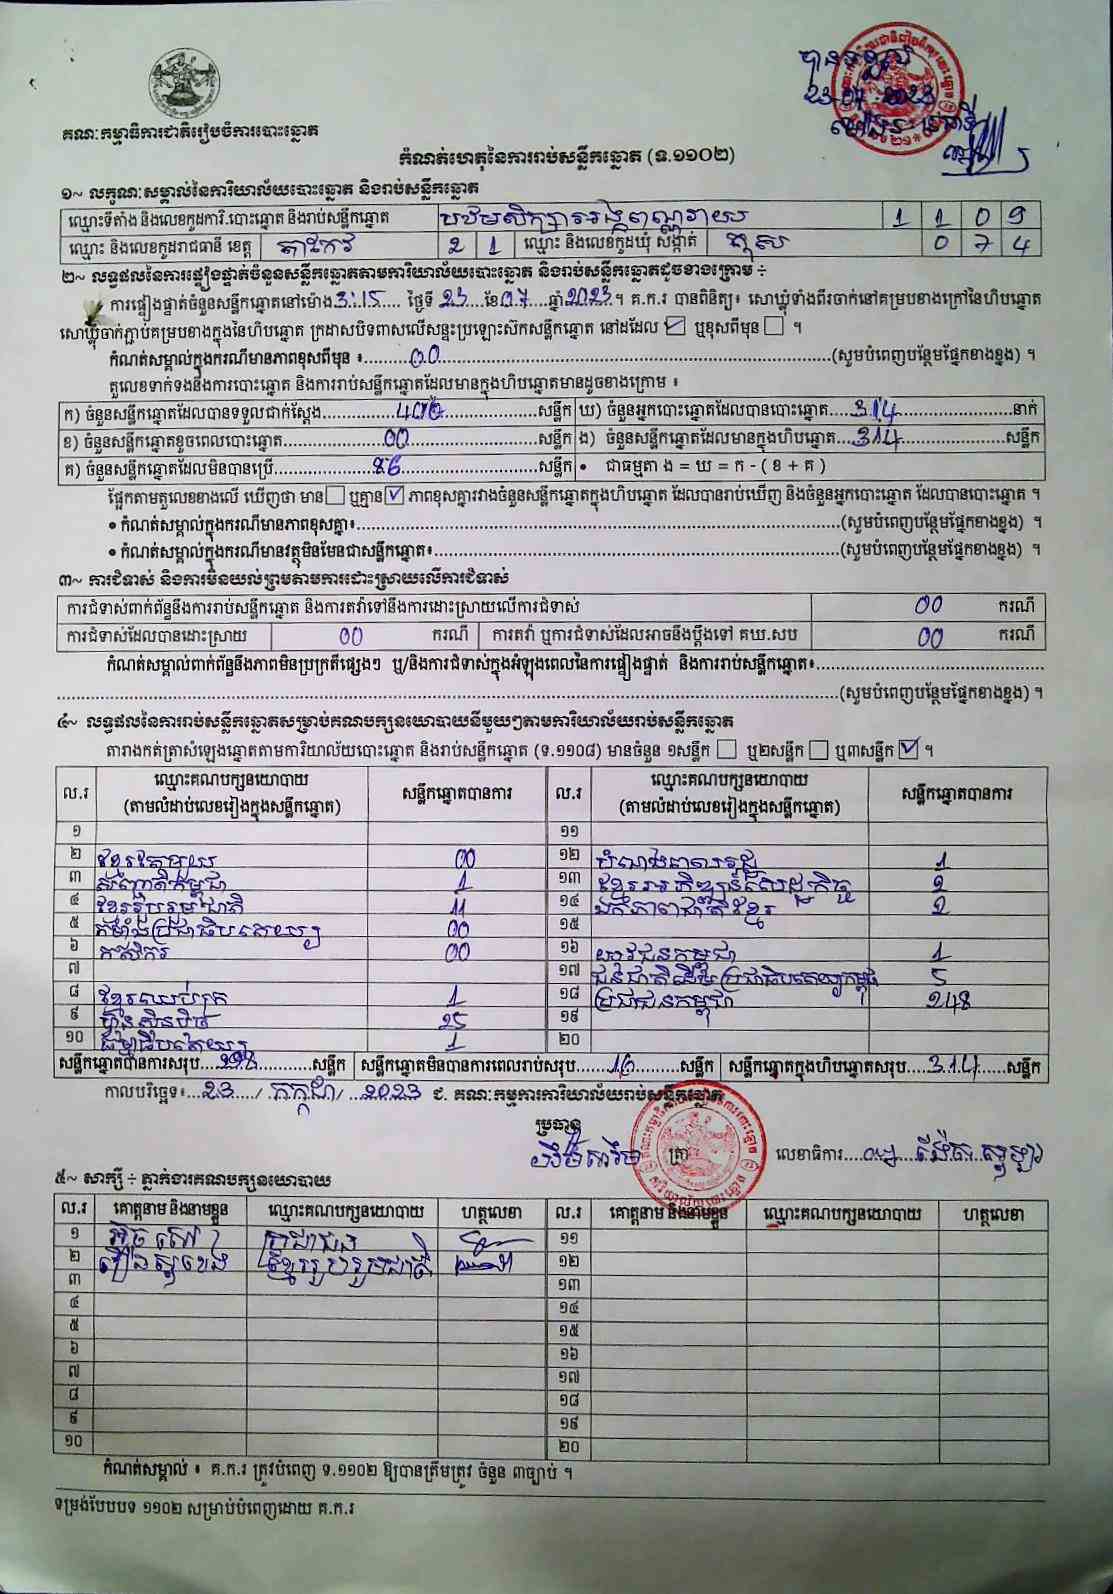 គណៈកម្មាធិការជាតិរៀបចំការបោះឆ្នោត
បានទទួល
23.07.2023
កំណត់ហេតុនៃការរាប់សន្លឹកឆ្នោត (ទ.១១០២)
១~ លក្ខណៈសម្គាល់នៃការិយាល័យបោះឆ្នោត និងរាប់សន្លឹកឆ្នោត
ឈ្មោះទីតាំង និងលេខកូដការិ.បោះឆ្នោត និងរាប់សន្លឹកឆ្នោត បឋមសិក្សាអង្គពណ្ណរាយ 1 1 0 9
ឈ្មោះ និងលេខកូដរាជធានី ខេត្ត តាកែវ 2 1 ឈ្មោះ និងលេខកូដឃុំ សង្កាត់ 0 7 4
២~ លទ្ធផលនៃការផ្ទៀងផ្ទាត់ចំនួនសន្លឹកឆ្នោតតាមការិយាល័យបោះឆ្នោត និងរាប់សន្លឹកឆ្នោតដូចខាងក្រោម ÷
ការផ្ទៀងផ្ទាត់ចំនួនសន្លឹកឆ្នោតនៅម៉ោង 3:15 ថ្ងៃទី 23 ខែ 07 ឆ្នាំ 2023 ។ គ.ក.រ បានពិនិត្យ៖ សោឃ្លុំទាំងពីរចាក់នៅគម្របខាងក្រៅនៃហិបឆ្នោត
សោឃ្លុំចាក់ភ្ជាប់គម្របខាងក្នុងនៃហិបឆ្នោត ក្រដាសបិទពាសលើសន្ទះប្រឡោះស៊កសន្លឹកឆ្នោត នៅដដែល ☑ ឬខុសពីមុន ☐ ។
កំណត់សម្គាល់ក្នុងករណីមានភាពខុសពីមុន ៖ 00 (សូមបំពេញបន្ថែមផ្នែកខាងខ្នង) ។
តួលេខទាក់ទងនឹងការបោះឆ្នោត និងការរាប់សន្លឹកឆ្នោតដែលមានក្នុងហិបឆ្នោតមានដូចខាងក្រោម ៖
ក) ចំនួនសន្លឹកឆ្នោតដែលបានទទួលជាក់ស្តែង 400 សន្លឹក ឃ) ចំនួនអ្នកបោះឆ្នោតដែលបានបោះឆ្នោត 314 នាក់
ខ) ចំនួនសន្លឹកឆ្នោតខូចពេលបោះឆ្នោត 00 សន្លឹក ង) ចំនួនសន្លឹកឆ្នោតដែលមានក្នុងហិបឆ្នោត 314 សន្លឹក
គ) ចំនួនសន្លឹកឆ្នោតដែលមិនបានប្រើ 86 សន្លឹក • ជាធម្មតា ង = ឃ = ក - ( ខ + គ )
ផ្អែកតាមតួលេខខាងលើ ឃើញថា មាន ☐ ឬគ្មាន ☑ ភាពខុសគ្នារវាងចំនួនសន្លឹកឆ្នោតក្នុងហិបឆ្នោត ដែលបានរាប់ឃើញ និងចំនួនអ្នកបោះឆ្នោត ដែលបានបោះឆ្នោត ។
• កំណត់សម្គាល់ក្នុងករណីមានភាពខុសគ្នា៖ (សូមបំពេញបន្ថែមផ្នែកខាងខ្នង) ។
• កំណត់សម្គាល់ក្នុងករណីមានវត្ថុមិនមែនជាសន្លឹកឆ្នោត៖ (សូមបំពេញបន្ថែមផ្នែកខាងខ្នង) ។
៣~ ការជំទាស់ និងការមិនយល់ព្រមតាមការដោះស្រាយលើការជំទាស់
ការជំទាស់ពាក់ព័ន្ធនឹងការរាប់សន្លឹកឆ្នោត និងការតវ៉ាទៅនឹងការដោះស្រាយលើការជំទាស់ 00 ករណី
ការជំទាស់ដែលបានដោះស្រាយ 00 ករណី ការតវ៉ា ឬការជំទាស់ដែលអាចនឹងប្តឹងទៅ គឃ.សប 00 ករណី
កំណត់សម្គាល់ពាក់ព័ន្ធនឹងភាពមិនប្រក្រតីផ្សេងៗ ឬ/និងការជំទាស់ក្នុងអំឡុងពេលនៃការផ្ទៀងផ្ទាត់ និងការរាប់សន្លឹកឆ្នោត៖
(សូមបំពេញបន្ថែមផ្នែកខាងខ្នង) ។
៤~ លទ្ធផលនៃការរាប់សន្លឹកឆ្នោតសម្រាប់គណបក្សនយោបាយនីមួយៗតាមការិយាល័យរាប់សន្លឹកឆ្នោត
តារាងកត់ត្រាសំឡេងឆ្នោតតាមការិយាល័យបោះឆ្នោត និងរាប់សន្លឹកឆ្នោត (ទ.១១០៨) មានចំនួន ១សន្លឹក ☐ ឬ២សន្លឹក ☐ ឬ៣សន្លឹក ☑ ។
ល.រ ឈ្មោះគណបក្សនយោបាយ (តាមលំដាប់លេខរៀងក្នុងសន្លឹកឆ្នោត) សន្លឹកឆ្នោតបានការ ល.រ ឈ្មោះគណបក្សនយោបាយ (តាមលំដាប់លេខរៀងក្នុងសន្លឹកឆ្នោត) សន្លឹកឆ្នោតបានការ
១ ១១
២ ខ្មែរតែមួយ 00 ១២ បំណងពលរដ្ឋ 1
៣ សញ្ជាតិកម្ពុជា 1 ១៣ ខ្មែរអភិវឌ្ឍន៍សេដ្ឋកិច្ច 2
៤ ខ្មែររួបរួមជាតិ 11 ១៤ ឯកភាពជាតិខ្មែរ 2
៥ កម្លាំងប្រជាធិបតេយ្យ 00 ១៥
៦ កសិករ 00 ១៦ យុវជនកម្ពុជា 1
៧ ១៧ ជនជាតិដើមប្រជាធិបតេយ្យកម្ពុជា 5
៨ ខ្មែរឈប់ក្រ 1 ១៨ ប្រជាជនកម្ពុជា 248
៩ ហ្វ៊ុនស៊ិនប៉ិច 25 ១៩
១០ ធម្មាធិបតេយ្យ 1 ២០
សន្លឹកឆ្នោតបានការសរុប 298 សន្លឹក សន្លឹកឆ្នោតមិនបានការពេលរាប់សរុប 16 សន្លឹក សន្លឹកឆ្នោតក្នុងហិបឆ្នោតសរុប 314 សន្លឹក
កាលបរិច្ឆេទ៖ 23 / កក្កដា / 2023 ជ. គណៈកម្មការការិយាល័យរាប់សន្លឹកឆ្នោត
ប្រធាន
ត្រា លេខាធិការ
៥~ សាក្សី ÷ ភ្នាក់ងារគណបក្សនយោបាយ
ល.រ គោត្តនាម និងនាមខ្លួន ឈ្មោះគណបក្សនយោបាយ ហត្ថលេខា ល.រ គោត្តនាម និងនាមខ្លួន ឈ្មោះគណបក្សនយោបាយ ហត្ថលេខា
១ ប្រជាជន ១១
២ ខ្មែររួបរួមជាតិ ១២
៣ ១៣
៤ ១៤
៥ ១៥
៦ ១៦
៧ ១៧
៨ ១៨
៩ ១៩
១០ ២០
កំណត់សម្គាល់ ៖ គ.ក.រ ត្រូវបំពេញ ទ.១១០២ ឱ្យបានត្រឹមត្រូវ ចំនួន ៣ច្បាប់ ។
ទម្រង់បែបបទ ១១០២ សម្រាប់បំពេញដោយ គ.ក.រ